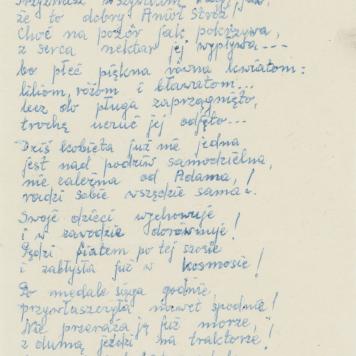 że to dobry Anioł Stróż!
Choć na pozór jak pokrzywa,
z serca nektar jej wypływa---
bo płeć piękna równa kwiatom:
liliom, różom i bławatom...
lecz do pługa zaprzągnięto,
trochę uczuć jej odjęto---
Dziś kobieta już nie jedna
jest nad podziw samodzielna,
nie zależna od Adama,!
radzi sobie wszędzie sama.
Swoje dzieci wychowuje!
i w zawodzie dorównuje!
Pędzi światem po tej szosie
i zabłysła już w kosmosie!
Po medale sięga godnie,
przywłaszczyła nawet spodnie!
Nie przeraża ją już morze,
z dumą jeździ na traktorze!